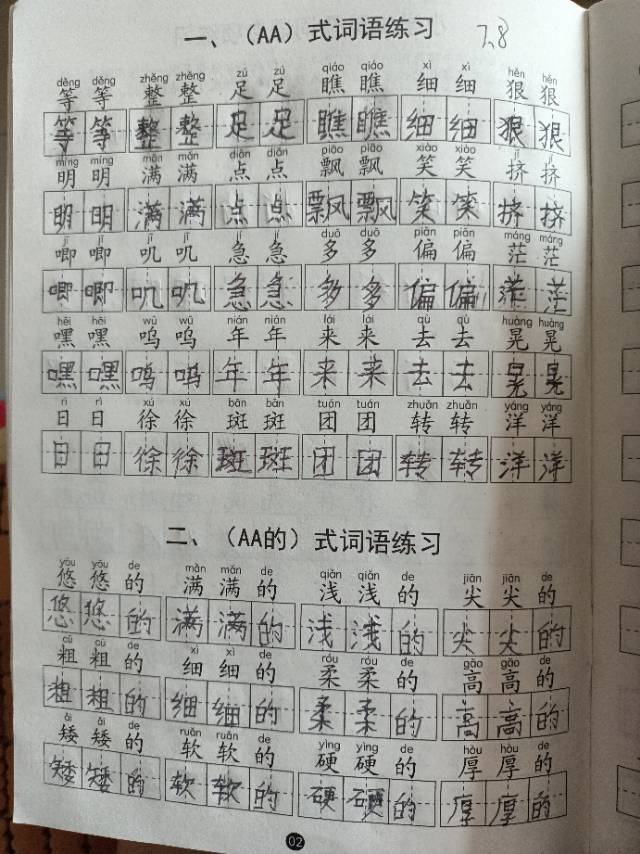 一、（AA）式词语练习 7.8
děng děng zhěng zhěng zú zú qiáo qiáo xì xì hěn hěn
等等 整整 足足 瞧瞧 细细 狠狠
等等 整整 足足 瞧瞧 细细 狠狠
míng míng mǎn mǎn diǎn diǎn piāo piāo xiào xiào jǐ jǐ
明明 满满 点点 飘飘 笑笑 挤挤
明明 满满 点点 飘飘 笑笑 挤挤
jī jī jī jī jí jí duō duō piān piān máng máng
唧唧 叽叽 急急 多多 偏偏 茫茫
唧唧 叽叽 急急 多多 偏偏 茫茫
hēi hēi wū wū nián nián lái lái qù qù huàng huàng
嘿嘿 呜呜 年年 来来 去去 晃晃
嘿嘿 呜呜 年年 来来 去去 晃晃
rì rì xú xú bān bān tuán tuán zhuǎn zhuǎn yáng yáng
日日 徐徐 斑斑 团团 转转 洋洋
日日 徐徐 斑斑 团团 转转 洋洋
二、（AA的）式词语练习
yōu yōu de mǎn mǎn de qiǎn qiǎn de jiān jiān de
悠悠的 满满的 浅浅的 尖尖的
悠悠的 满满的 浅浅的 尖尖的
cū cū de xì xì de róu róu de gāo gāo de
粗粗的 细细的 柔柔的 高高的
粗粗的 细细的 柔柔的 高高的
ǎi ǎi de ruǎn ruǎn de yìng yìng de hòu hòu de
矮矮的 软软的 硬硬的 厚厚的
矮矮的 软软的 硬硬的 厚厚的
02